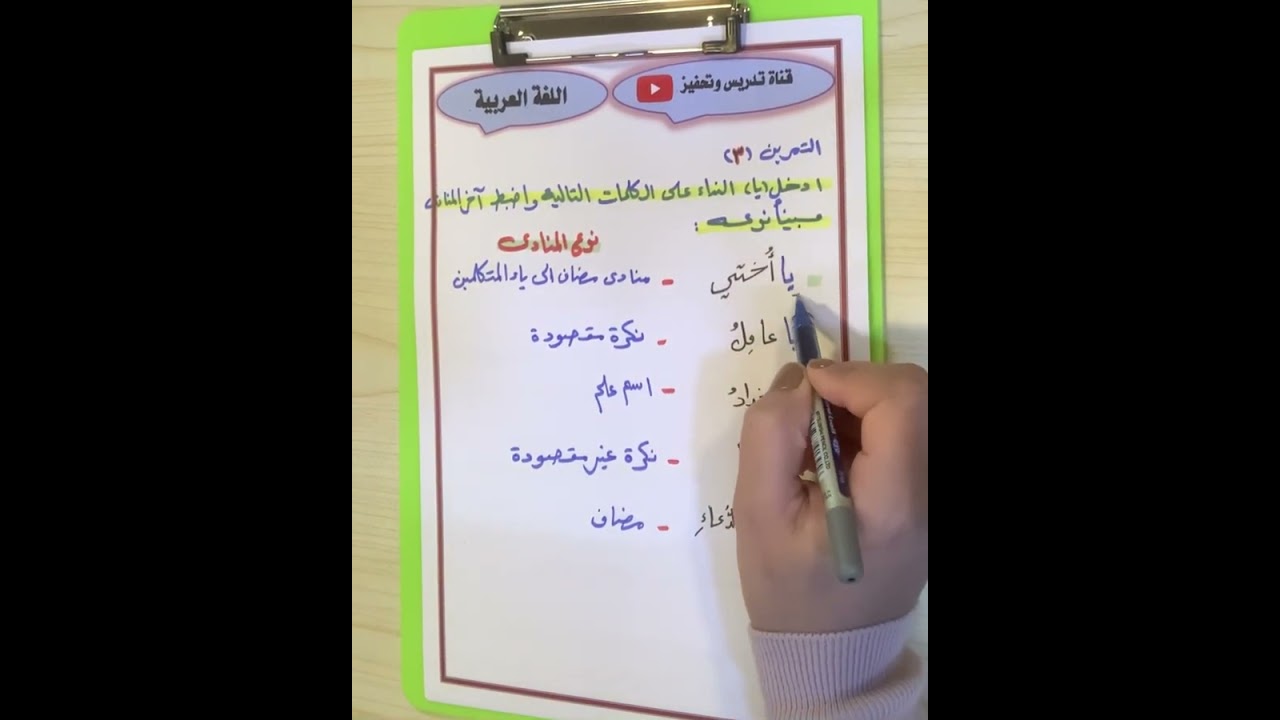 قناة تدريس وتحفيز
اللغة العربية
التمرين (٣)
ادخل (يا) النداء على الكلمات التالية واضبط آخر المنادى
مبيناً نوعه :
نوع المنادى
يا أُختي - منادى مضاف الى ياء المتكلمين
يا عامِلُ - نكرة مقصودة
- اسم علم
- نكرة غير مقصودة
- مضاف